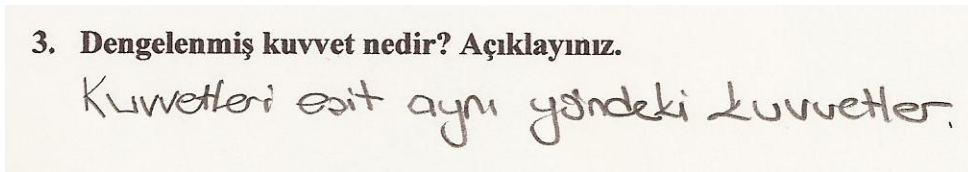 3. Dengelenmiş kuvvet nedir? Açıklayınız.
Kuvvetleri eşit aynı yöndeki kuvvetler.